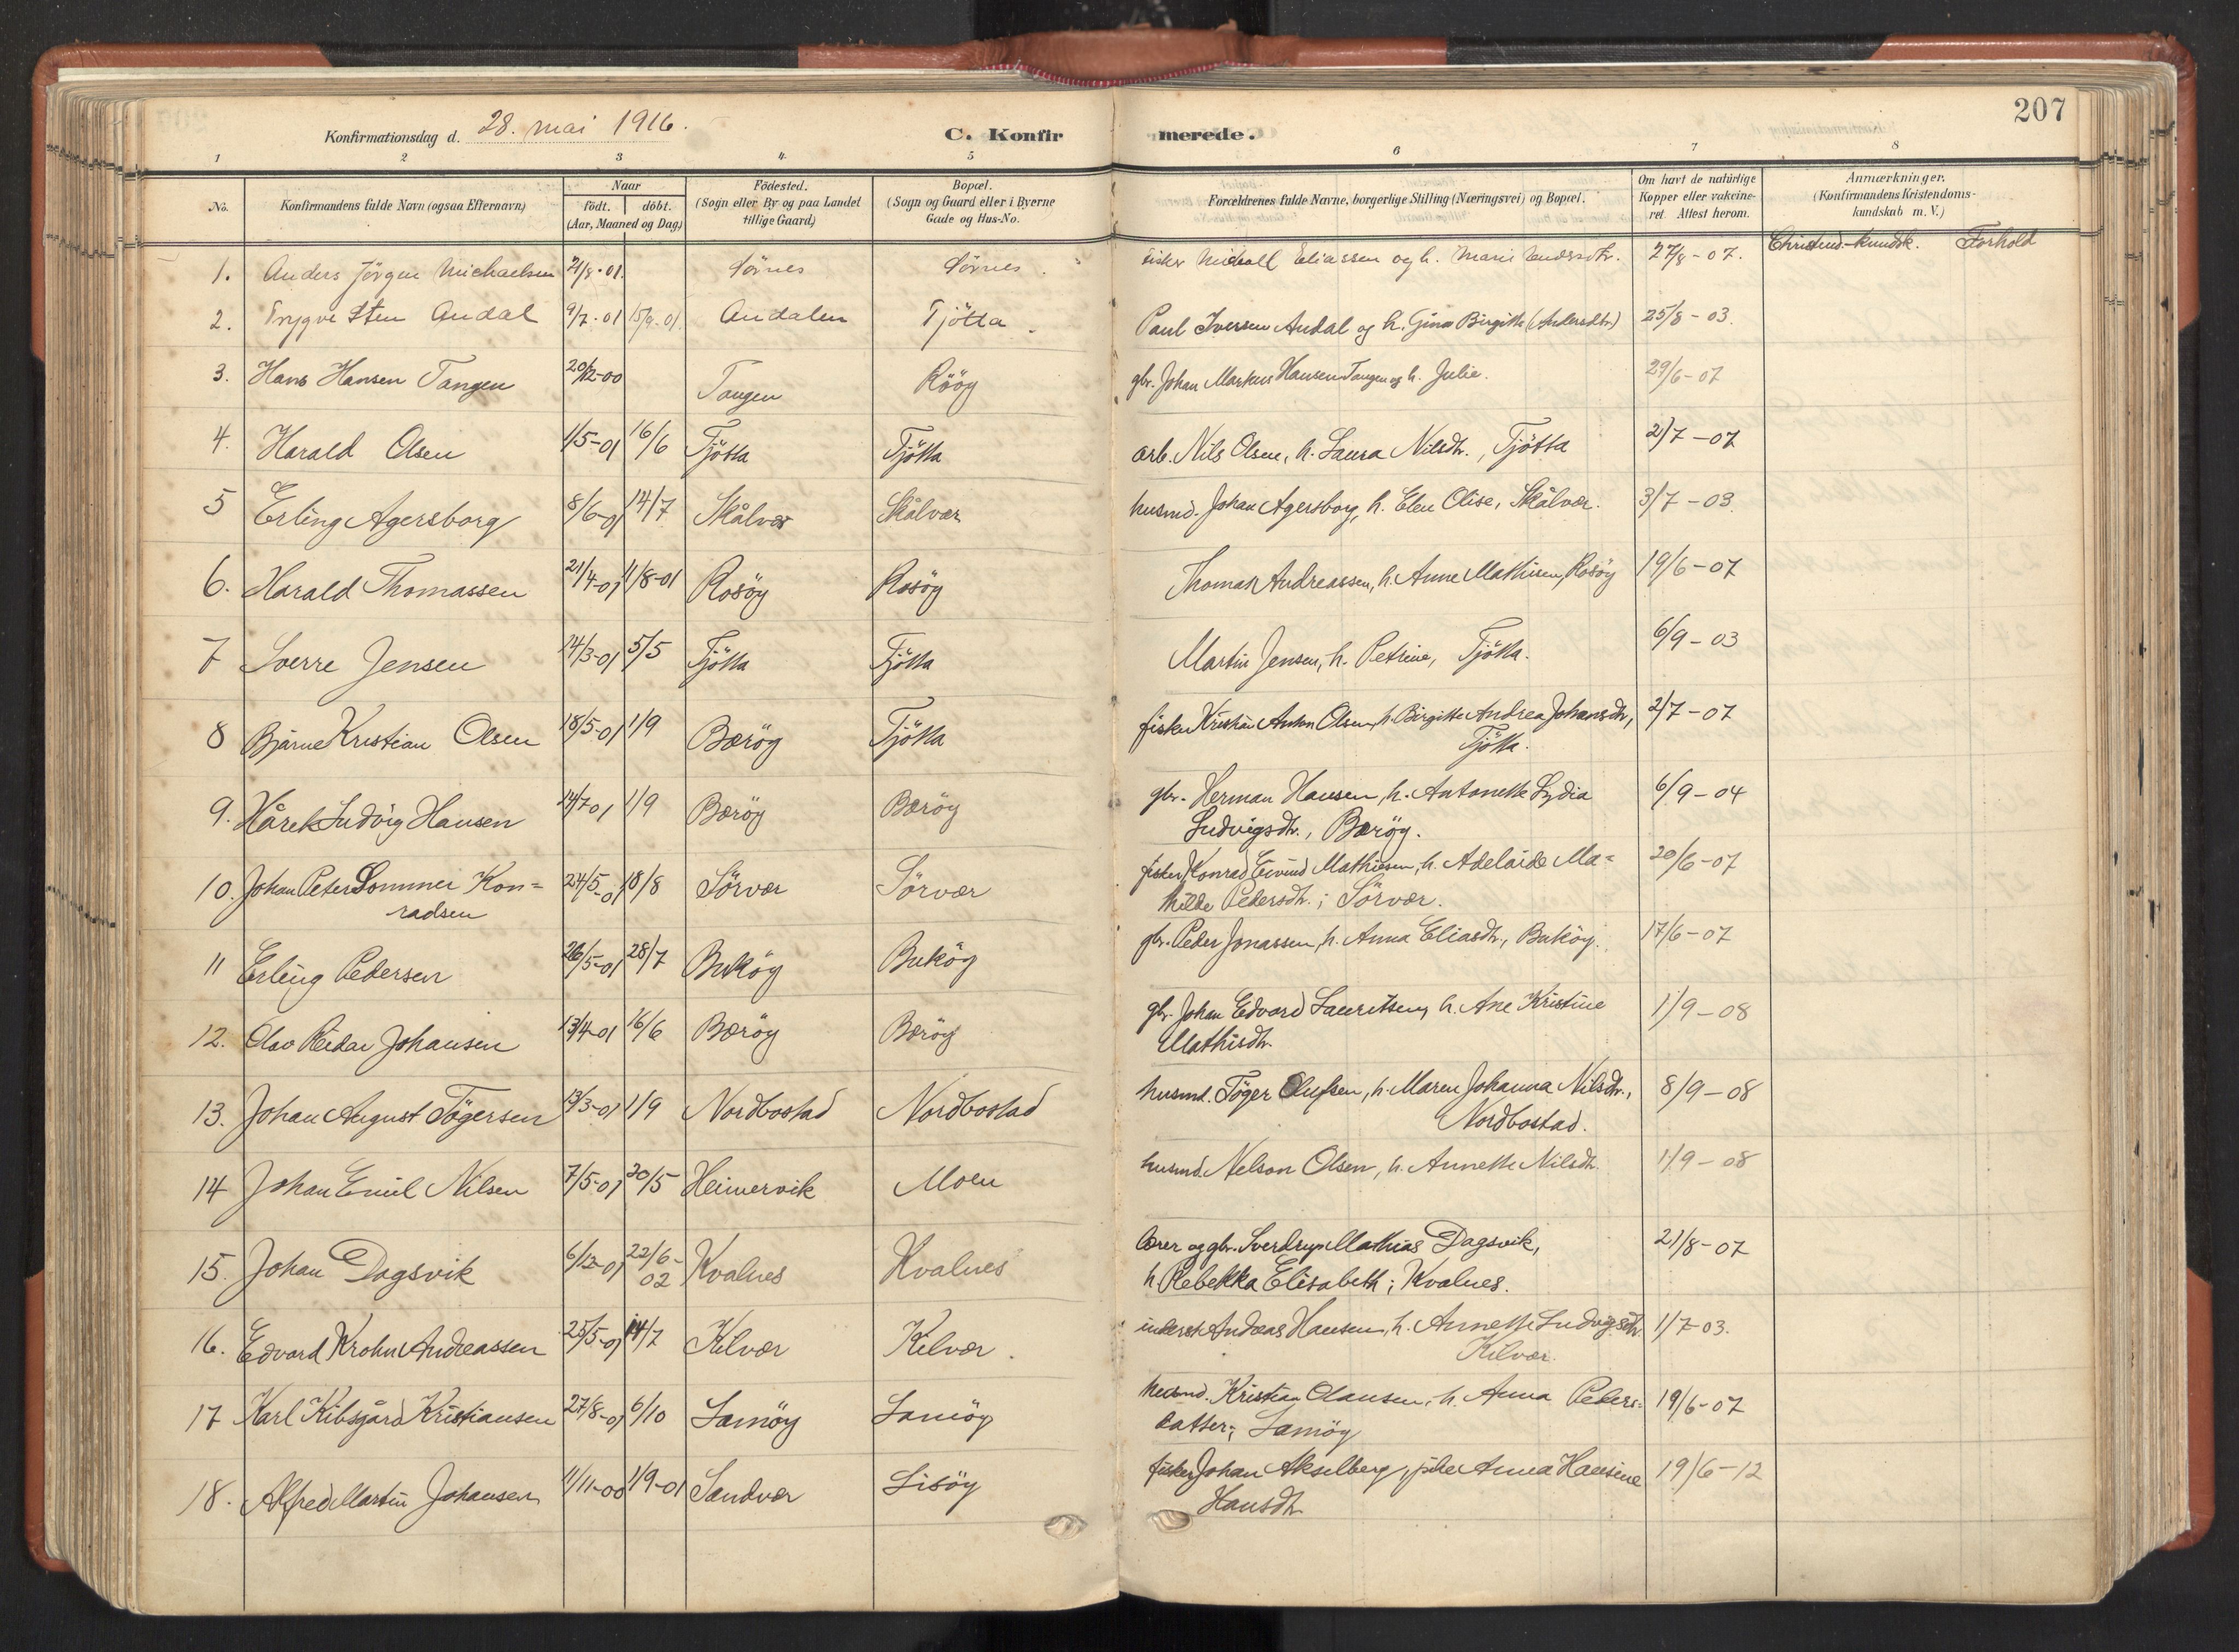 207
Konfirmationsdag d. 28. mai 1916.
C. Konfirmerede.
1 2 3 4 5 6 7 8
No. Konfirmandens fulde Navn (ogsaa Efternavn) Naar födt. döbt. (Aar, Maaned og Dag) Födested. (Sogn eller By og paa Landet tillige Gaard) Bopæl. (Sogn og Gaard eller i Byerne Gade og Hus-No. Forældrenes fulde Navne, borgerlige Stilling (Næringsvei) og Bopæl. Om havt de natúrlige Kopper eller vakcineret. Attest herom. Anmærkninger. (Konfirmandens Kristendomskundskab m. V.)
Christend.-kundsk. Forhold
1. Anders Jörgen Michaelsen 21/8-01. Sörnes Sörnes. fisker Michall Eliassen og h. Maria Andersdtr. 27/8-07.
2. Trygve Sten Andal 9/7-01 15/9-01 Andalen Tjötta. Paul Iversen Andal og h. Gina Birgitte (Andersdtr) 25/8-03.
3. Hans Hansen Tangen 20/12-00 Tangen Röög gbr. Johan Markus Hansen Tangen og h. Julie. 29/6-07
4. Harald Olsen 1/5-01 16/6 Tjötta Tjötta arb. Nils Olsen, h. Laura Nilsdtr., Tjötta 2/7-07
5 Erling Agersborg 8/6-01 14/7 Skålvær Skålvær husmd. Johan Agersborg, h. Elen Olise, Skålvær. 3/7-03.
6. Harald Thomassen 21/4-01 11/8-01 Rosöy Rosöy Thomas Andreassen, h. Anne Mathisen, Rosöy 19/6-07
7 Sverre Jensen 24/3-01 5/5 Tjötta Tjötta Martin Jensen, h. Petrine, Tjötta. 6/9-03
8 Bjarne Kristian Olsen 18/5-01 1/9 Bæröy Tjötta fisker Kristian Anton Olsen, h. Birgitte Andrea Johansdtr, 2/7-07
Tjötta.
9. Hårek Ludvig Hansen 14/7-01 1/9 Bæröy Bæröy gbr. Herman Hansen, h. Antonette Lydia 6/9-04
Ludvigsdtr., Bæröy.
10. Johan Peter Sommer Kon= 24/5-01 18/8 Sörvær Sörvær fisker Konrad Eivind Mathiesen, h. Adelaide Ma= 20/6-07
radsen thilde Pedersdtr.; Sörvær.
11 Erling Pedersen 26/5-01 28/7 Buköy Buköy gbr. Peder Jonassen, h. Anna Eliasdtr, Buköy. 17/6-07
12. Olav Reidar Johansen 13/4-01 16/6 Bæröy Bæröy gbr. Johan Edvard Lauritsen, h. Ane Kristine 1/9-08
Mathisdtr.
13. Johan August Tögersen 13/3-01 1/9 Nordbostad Nordbostad husmd. Töger Olufsen, h. Maren Johanna Nilsdtr., 8/9-08
Nordbostad.
14 Johan Emil Nilsen 7/5-01 20/5 Heimervik Moen husmd. Nelson Olsen, h. Annette Nilsdtr. 1/9-08
15. Johan Dagsvik 6/12-01 22/6-02 Kvalnes Kvalnes lærer og gbr. Sverdrup Mathias Dagsvik, 21/8-07
h. Rebekka Elisabeth; Kvalnes.
16. Edvard Krohn Andreassen 25/5-01 14/7 Kilvær Kilvær. inderst Andreas Hansen, h. Annette Ludvigsdtr. 1/7-03.
Kilvær.
17 Karl Kibsgård Kristiansen 27/8-01 6/10 Lamöy Lamöy husmd. Kristian Olausen, h. Anna Peders= 19/6-07
datter; Lamöy
18. Alfred Martin Johansen 11/11-00 1/9-01 Sandvær Lisöy fisker Johan Akselberg, pike Anna Hansine 19/6-12
Hansdtr